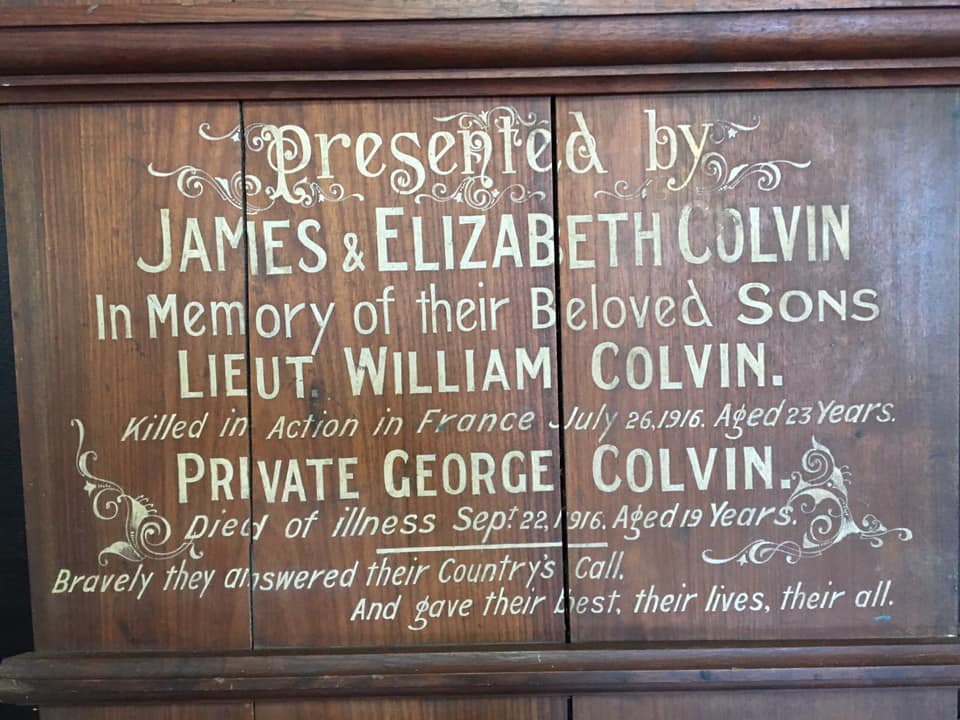 Presented by
JAMES & ELIZABETH COLVIN
In Memory of their Beloved SONS
LIEUT. WILLIAM COLVIN.
Killed in Action in France July 26, 1916. Aged 23 Years.
PRIVATE GEORGE COLVIN.
Died of illness Sept 22, 1916. Aged 19 Years.
Bravely they answered their Country's Call.
And gave their best, their lives, their all.